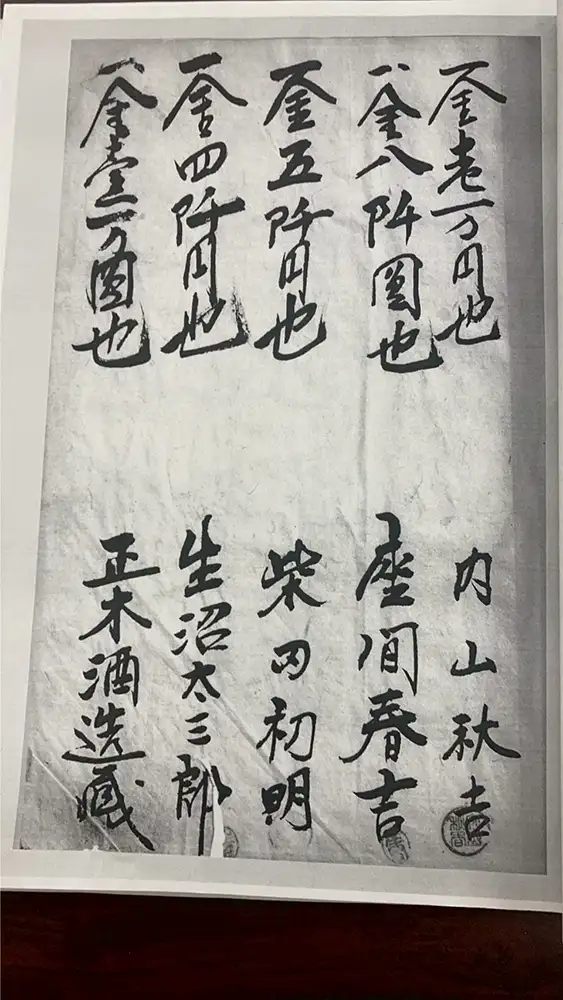 一金壱万円也 内山秋吉
一金八阡圓也 座間春吉
一金五阡円也 柴田初明
一金四阡円也 生沼太三郎
一金壹万圓也 正木酒造蔵